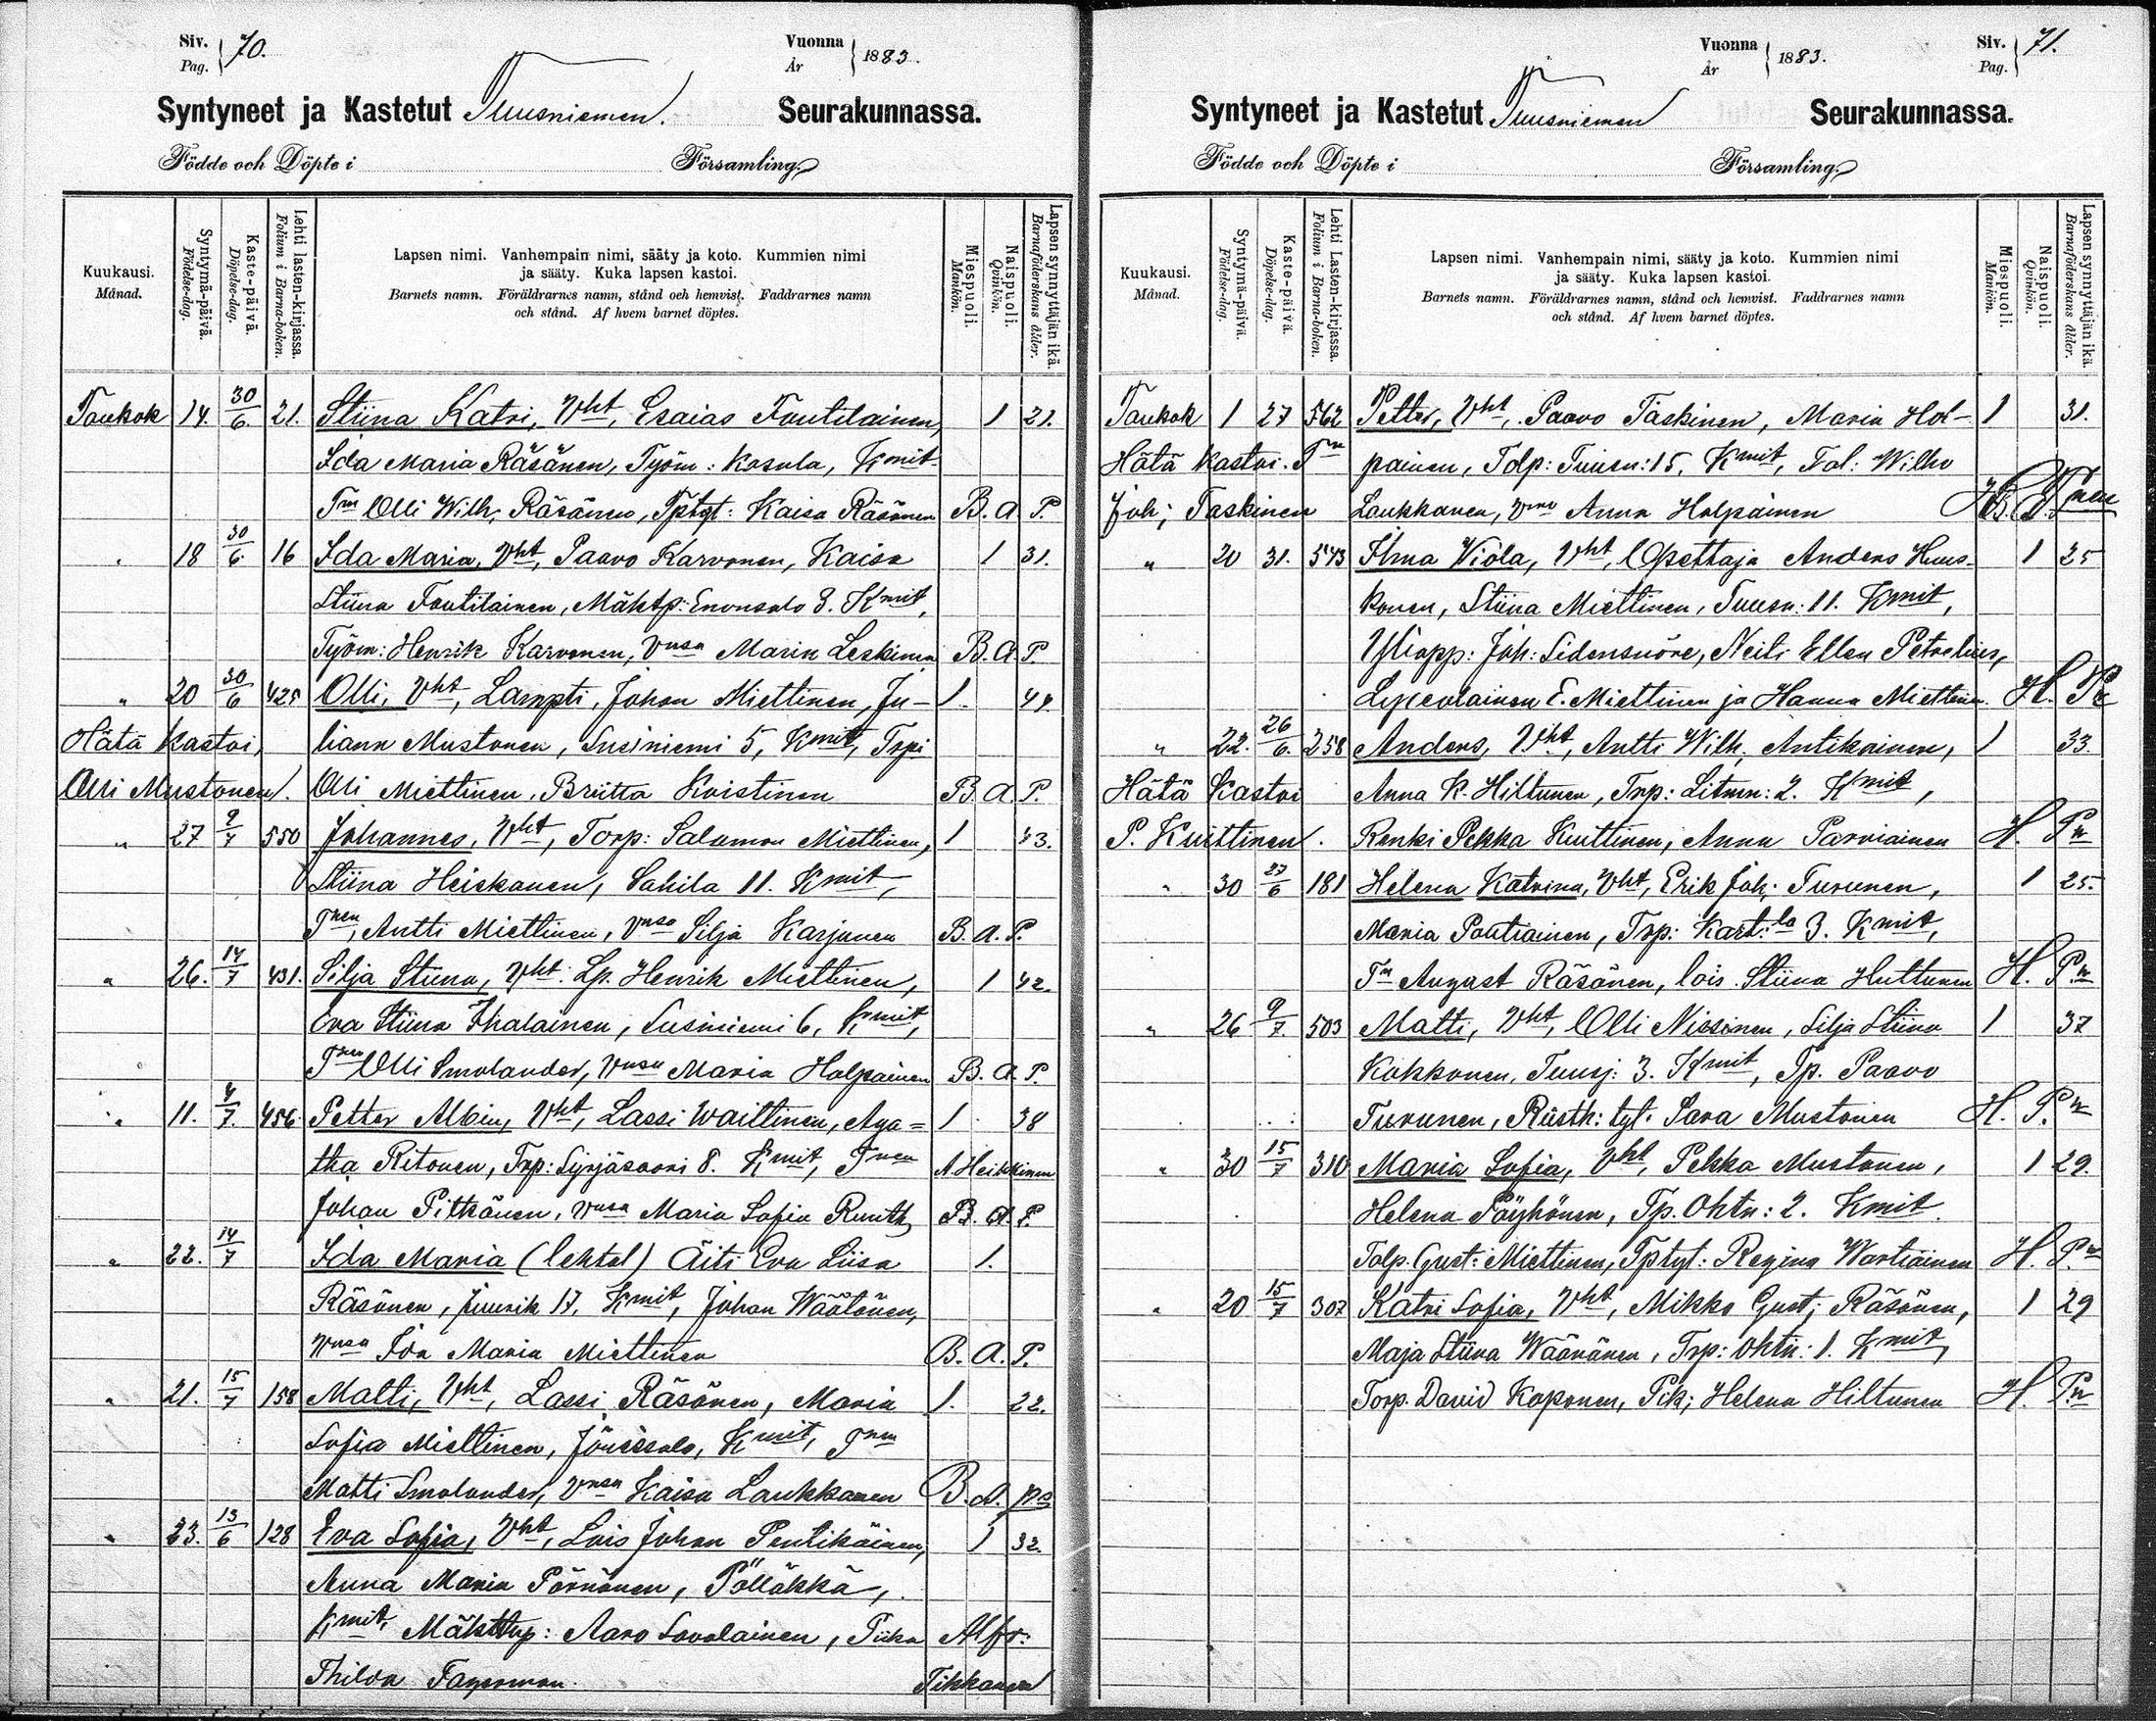 Siv. Pag. 70.
Vuonna År 1883.
Syntyneet ja Kastetut Tuusniemen. Seurakunnassa.
Födde och Döpte i Församling.
Kuukausi. Månad.
Syntymä-päivä. Födelse-dag.
Kaste-päivä. Döpelse-dag.
Lehti lasten-kirjassa. Folium i Barna-boken.
Lapsen nimi. Vanhempain nimi, sääty ja koto. Kummien nimi
ja sääty. Kuka lapsen kastoi.
Barnets namn. Föräldrarnes namn, stånd och hemvist. Faddrarnes namn
och stånd. Af hvem barnet döptes.
Miespuoli. Mankön.
Naispuoli. Qvinkön.
Lapsen synnyttäjän ikä. Barnaföderskans ålder.
Toukok 14. 30/6. 21. Stiina Katri, Vht, Esaias Foutilainen, 1 21.
Ida Maria Räsänen, Työm: Kosula, Kmit
Tm Olli Wilh. Räsänen, Tptyt: Kaisa Räsänen B. A. P.
" 18 30/6. 16 Ida Maria, Vht, Paavo Karvonen, Kaisa 1 31.
Stiina Foutilainen, Mäktp: Enonsalo 3. Kmit,
Työm: Henrik Karvonen, Vnsa Maria Leskinen B. A. P.
" 20 30/6 425 Olli, Vht, Lampti, Johan Miettinen, Ju- 1. 44.
Hätä kastoi, liana Mustonen, Susiniemi 5, Kmit, Trpi
Olli Mustonen. Olli Miettinen, Briitta Koistinen B. A. P.
" 27 2/7 550 Johannes, Vht, Torp: Salamon Miettinen, 1 43.
Stiina Heiskanen, Sahila 11. Kmit,
Tnen, Antti Miettinen, Vnsa Silja Karjunen B. A. P.
" 26. 14/7 431. Silja Stiina, Vht: Lp. Henrik Miettinen, 1 42.
Eva Stiina Ihalainen, Susiniemi 6, Kmit,
Tnen Olli Smolander, Vnsa Maria Holpainen B. A. P.
" 11. 4/7. 456. Petter Albin, Vht, Lassi Waittinen, Aga= 1 38
tha Ritonen, Trp: Syrjäsaari 8. Kmit, Tnen A Heikkinen
Johan Pitkänen, Vnsa Maria Sofia Ruuth, B. A. P.
" 22. 14/7 Ida Maria (lehtol) Äiti Eva Liisa 1.
Räsänen, Juurik 17, Kmit, Johan Wäätänen,
Vnsa Ida Maria Miettinen B. A. P.
" 21. 15/7 158 Matti, Vht, Lassi Räsänen, Maria 1. 22.
Sofia Miettinen, Kmit, Tnen
Matti Smolander, Vnsa Kaisa Laukkanen B. A.
" 23. 13/6 128 Eva Sofia, Vht, Lois Johan Pentikäinen, 1 32.
Anna Maria Pörnänen, Pölläkkä,
Kmit, Mäkttp: Aaro Savolainen, Piika Alfr:
Thilda Fagerman. Tikkanen
Vuonna År 1883.
Siv. Pag. 71.
Syntyneet ja Kastetut Tuusniemen Seurakunnassa.
Födde och Döpte i Församling.
Kuukausi. Månad.
Syntymä-päivä. Födelse-dag.
Kaste-päivä. Döpelse-dag.
Lehti Lasten-kirjassa. Folium i Barna-boken.
Lapsen nimi. Vanhempain nimi, sääty ja koto. Kummien nimi
ja sääty. Kuka lapsen kastoi.
Barnets namn. Föräldrarnes namn, stånd och hemvist. Faddrarnes namn
och stånd. Af hvem barnet döptes.
Miespuoli. Mankön.
Naispuoli. Qvinkön.
Lapsen synnyttäjän ikä. Barnaföderskans ålder.
Toukok 1 27 562 Petter, Vht, Paavo Taskinen, Maria Hol- 1 31.
Hätä kastoi. Tm painen, Tolp: Tuusn: 15, Kmit, Tal: Wilho
Joh; Taskinen Laukkanen, Anna Holpainen
" 20 31. 543 Ilma Wiola, Vht, Opettaja Anders Huus- 1 25
konen, Stiina Miettinen, Tuusn: 11. Kmit,
Yliopp: Joh: Sidensnöre, Neiti Ellen Petrelius,
Lyseolainen E. Miettinen ja Hanna Miettinen. H.
" 22. 26/6. 258 Anders, Vht, Antti Wilh. Antikainen, 1 33.
Hätä Kastoi Anna K. Hiltunen, Trp: Litmn: 2. Kmit,
P. Kuittinen. Renki Pekka Kuittinen, Anna Parviainen H. Pn
" 30 27/6 181 Helena Katrina, Vht, Erik Joh; Turunen, 1 25.
Maria Poutiainen, Trp: Kart:la 3. Kmit,
Tn August Räsänen, lois. Stiina Huttunen H. Pn
" 26 9/7. 503 Matti, Vht, Olli Nissinen, Silja Stiina 1 37
Kokkonen, Tuusj: 3. Kmit, Tp. Paavo
Turunen, Rusth: tyt. Sara Mustonen H. Pn
" 30 15/7 310 Maria Sofia, Vht, Pekka Mustonen, 1 29.
Helena Pöyhönen, Tp. Ohtn: 2. Kmit.
Talp. Gust: Miettinen, Tptyt: Regina Wartiainen H. Pn
" 20 15/7 307 Katri Sofia, Vht, Mikko Gust; Räsänen, 1 29
Maja Stiina Wäänänen, Trp: Ohtn: 1. Kmit,
Torp. David Koponen, Pik; Helena Hiltunen H. Pn